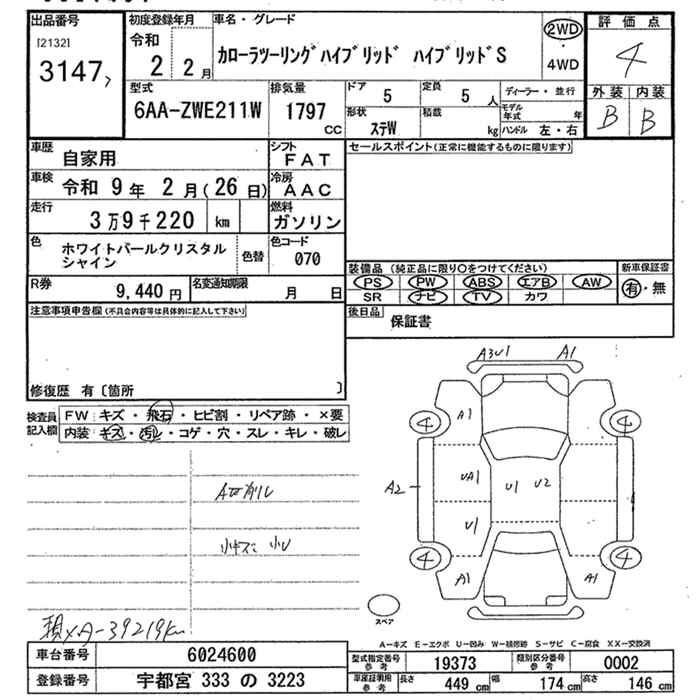 出品番号
[2132]
3147
初度登録年月
令和
2 2月
車名・グレード
カローラツーリングハイブリッド ハイブリッドS
2WD
・
4WD
評価点
4
外装 内装
B B
型式
6AA-ZWE211W
排気量
1797
cc
ドア
5
定員
5 人
形状
ステW
積載
kg
ディーラー・並行
モデル年式 年
ハンドル 左・右
車歴
自家用
シフト
FAT
車検
令和 9年 2月(26日)
冷房
AAC
走行
3万9千220 km
燃料
ガソリン
色
ホワイトパールクリスタル
シャイン
色替
色コード
070
R券
9,440円
名変通知期限
月 日
セールスポイント(正常に機能するものに限ります)
装備品(純正品に限り○をつけてください)
PS PW ABS エアB AW
SR ナビ TV カワ
新車保証書
有・無
後日品
保証書
注意事項申告欄(不具合内容等は具体的に記入して下さい)
修復歴 有〔箇所 〕
検査員
記入欄
FW:キズ・飛石・ヒビ割・リペア跡・×要
内装:キズ・汚レ・コゲ・穴・スレ・キレ・破レ
A3U1 A1
4 A1 4
A2 UA1 U1 U2
U1
4 A1 A1 4
スペア
A-キズ E-エクボ U-凹み W-補修跡 S-サビ C-腐食 XX-交換済
車台番号
6024600
登録番号
宇都宮 333 の 3223
型式指定番号
参考
19373
類別区分番号
参考
0002
車庫証明用
参考
長さ
449 cm
幅
174 cm
高さ
146 cm